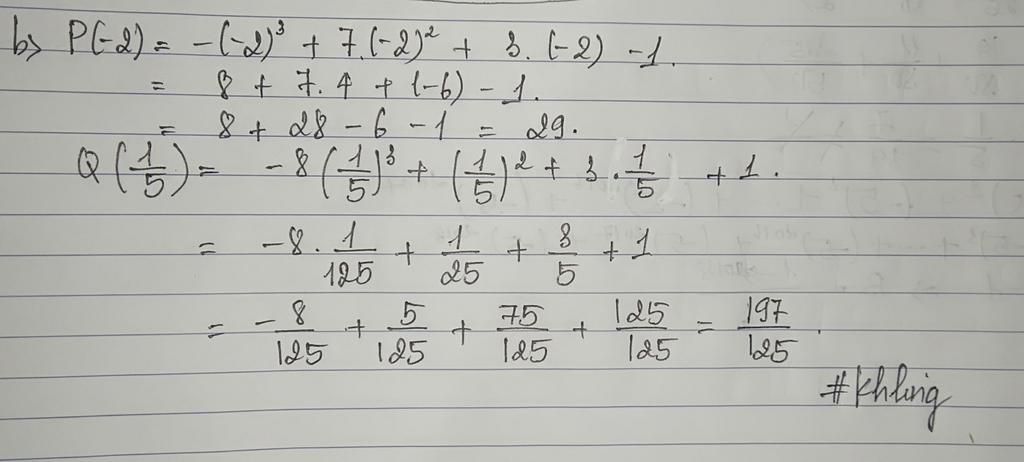 b) P(-2) = -(-2)³ + 7.(-2)² + 3.(-2) - 1.
= 8 + 7.4 + (-6) - 1.
= 8 + 28 - 6 - 1 = 29.
Q(1/5) = -8(1/5)³ + (1/5)² + 3.1/5 + 1.
= -8.1/125 + 1/25 + 3/5 + 1
= -8/125 + 5/125 + 75/125 + 125/125 = 197/125.
#Khling